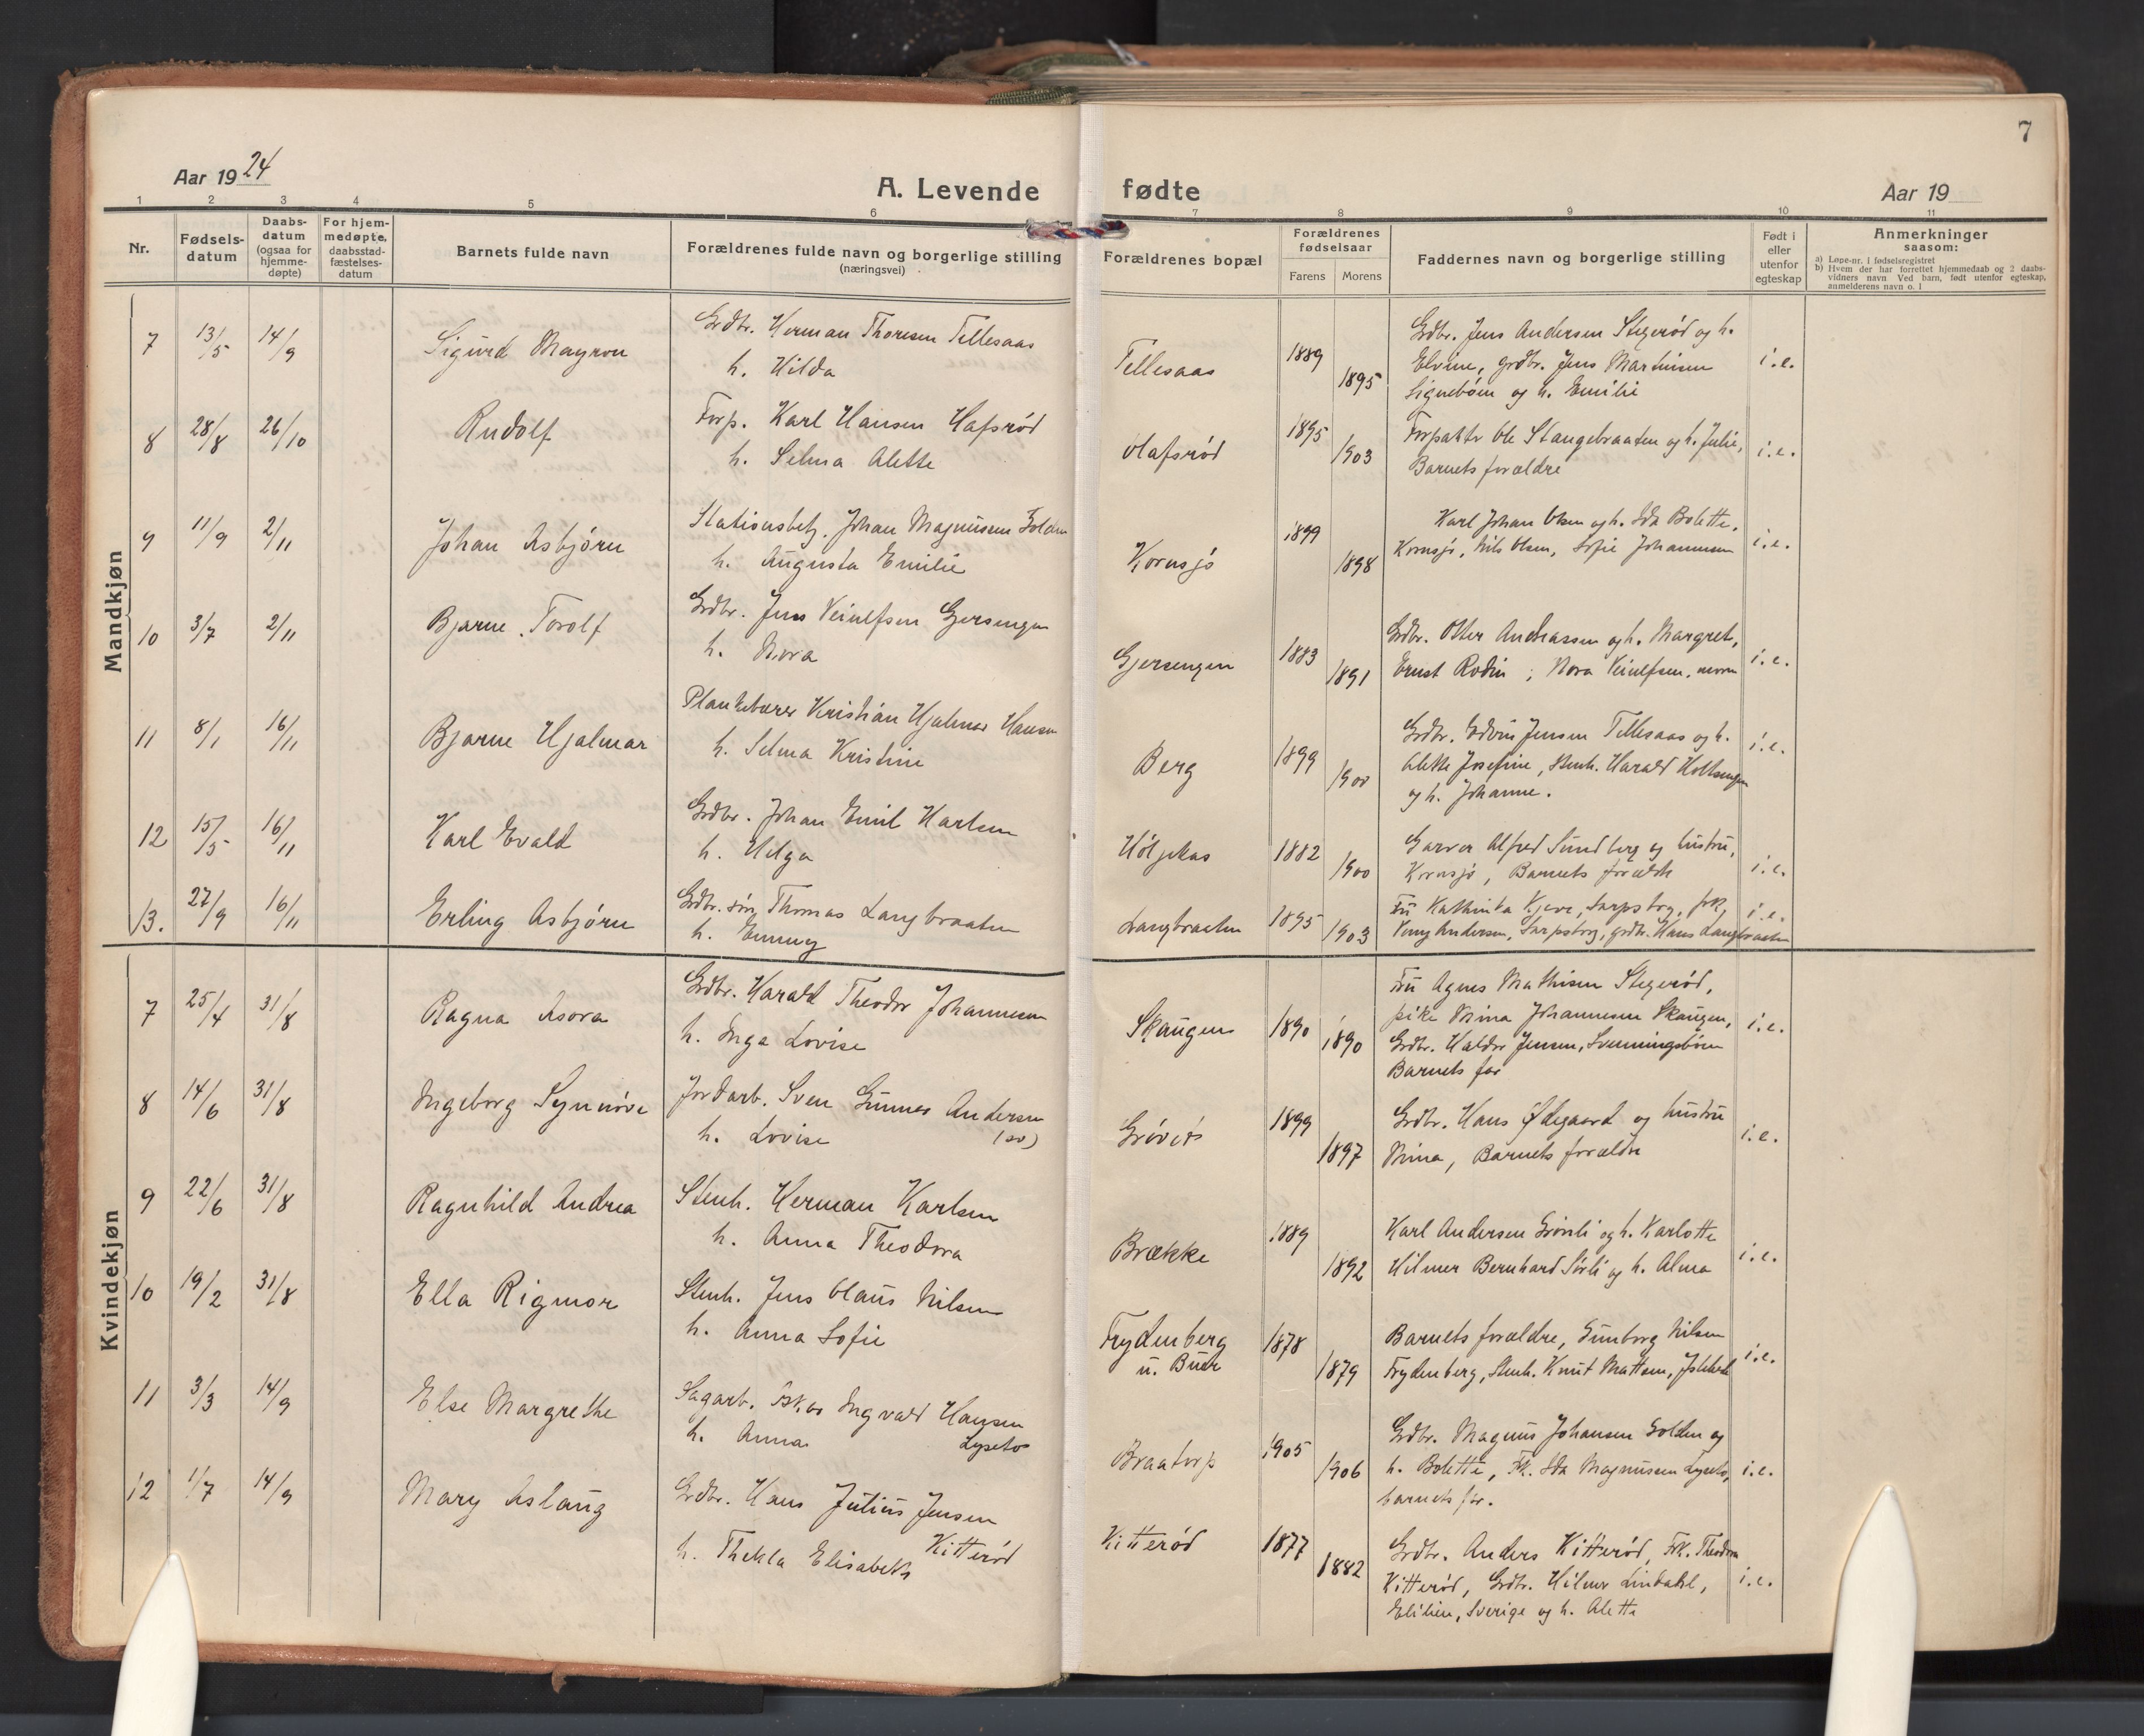 7
Aar 19 24
A. Levende fødte
Aar 19
1 2 3 4 5 6 7 8 9 10 11
Nr.
Fødsels-
datum
Daabs-
datum
(ogsaa for
hjemme-
døpte)
For hjem-
medøpte,
daabsstad-
fæstelses-
datum
Barnets fulde navn
Forældrenes fulde navn og borgerlige stilling
(næringsvei)
Forældrenes bopæl
Forældrenes
fødselsaar
Farens Morens
Faddernes navn og borgerlige stilling
Født i
eller
utenfor
egteskap
Anmerkninger
saasom:
a) Løpe-nr. i fødselsregistret
b) Hvem der har forrettet hjemmedaab og 2 daabs-
vidners navn Ved barn, født utenfor egteskap,
anmelderens navn o. l
Mandkjøn
7 13/5 14/9 Sigurd Mayron
Grdbr. Herman Thoresen Tellesaas
h. Hilda
Tellesaas 1889 1895
Grdbr. Jens Andersen Stegerød og h.
Elvine, grdbr. Jens Martinsen
Signebøen og h. Emilie
i.e.
8 28/8 26/10 Rudolf
Forp. Karl Hansen Hafsrød
h. Selma Alette
Olafsrød 1895 1903
Forpakter Ole Stangebraaten og h. Julie,
Barnets forældre
i.e.
9 11/9 2/11 Johan Asbjørn
Stationsbetj. Johan Magnussen Solden
h. Augusta Emilie
Kornsjø 1899 1898
Karl Johan Olsen og h. Ida Bolette,
Kornsjø, Nils Olsen, Sofie Johannesen
i.e.
10 3/7 2/11 Bjarne Torolf
Grdbr. Jens Veiulfsen Gjersengen
h. Nora
Gjersengen 1883 1891
Grdbr. Otter Andreassen og h. Margret,
Ernst Rodin, Nora Veiulfsen, moren
i.e.
11 8/1 16/11 Bjarne Hjalmar
Plankebærer Kristian Hjalmar Hansen
h. Selma Kristine
Berg 1899 1900
Grdbr. Edvin Jensen Tellesaas og h.
Alette Josefine, Stenh. Harald
og h. Johanne.
i.e.
12 15/5 16/11 Karl Evald
Grdbr. Johan Emil Karlsen
h. Helga
Høljekas 1882 1900
Garver Alfred Sundberg og hustru,
Kornsjø, Barnets forældre
i.e.
13. 27/9 16/11 Erling Asbjørn
Grdbr. søn Thomas Langbraaten
h. Emmy
Langbraaten 1895 1903
Fru Kathinka Kjere, Sarpsborg, frk
Andersen, Sarpsborg, grdbr. Hans Langbraaten
i.e.
Kvindekjøn
7 25/4 31/8 Ragna Asora
Grdbr. Harald Theodor Johannesen
h. Inga Lovise
Skaugen 1890 1890
Fru Agnes Mathisen Stegerød,
pike Mina Johannesen Skaugen,
Grdbr. Haldor Jensen, Svenningsbøen
Barnets far
i.e.
8 14/6 31/8 Ingeborg Synnøve
Jordarb. Sven Gunnar Andersen
h. Lovise (sv)
1899 1897
Grdbr. Hans Ødegaard og hustru
Mina, Barnets forældre
i.e.
9 22/6 31/8 Ragnhild Andrea
Stenh. Herman Karlsen
h. Anna Theodora
Brække 1889 1892
Karl Andersen Grønli og h. Karlotte
Hilmer Bernhard Sørli og h. Alma
i.e.
10 19/2 31/8 Ella Rigmor
Stenh. Jens Olaus Nilsen
h. Anna Sofie
Frydenberg
u. Buer
1878 1879
Barnets forældre, Gunborg Nilsen
Frydenberg, Stenh. Knut Mattsen,
i.e.
11 3/3 14/9 Else Margrethe
Sagarb. Oskar Ingvald Hansen
h. Anna Lysetos
Braatorp 1905 1906
Grdbr. Magnus Johansen Solden og
h. Bolette, Fr. Ida Magnussen Lysetos,
barnets far.
i.e.
12 1/7 14/9 Mary Aslaug
Grdbr. Hans Julius Jensen
Kitterød
h. Thekla Elisabeth
Kitterød 1877 1882
Grdbr. Anders Kitterød, Frk. Theodora
Kitterød, Grdbr. Hilmer Lindahl,
Elilien, Sverige og h. Alette
i.e.